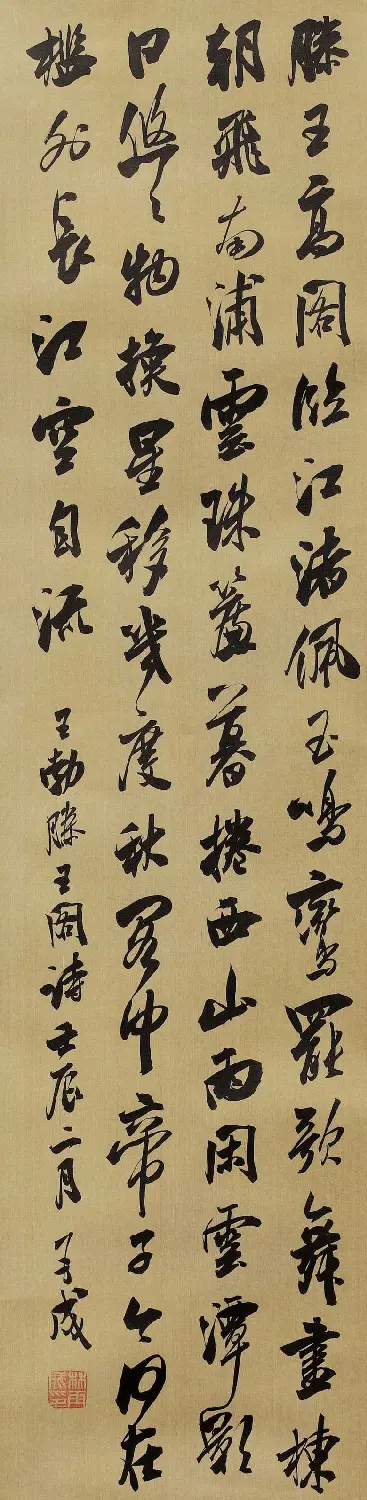 滕王高閣臨江渚佩玉鳴鸞罷歌舞畫棟
朝飛南浦雲珠簾暮捲西山雨閑雲潭影
日悠々物換星移幾度秋閣中帝子今何在
檻外長江空自流
王勃滕王閣詩壬辰二月